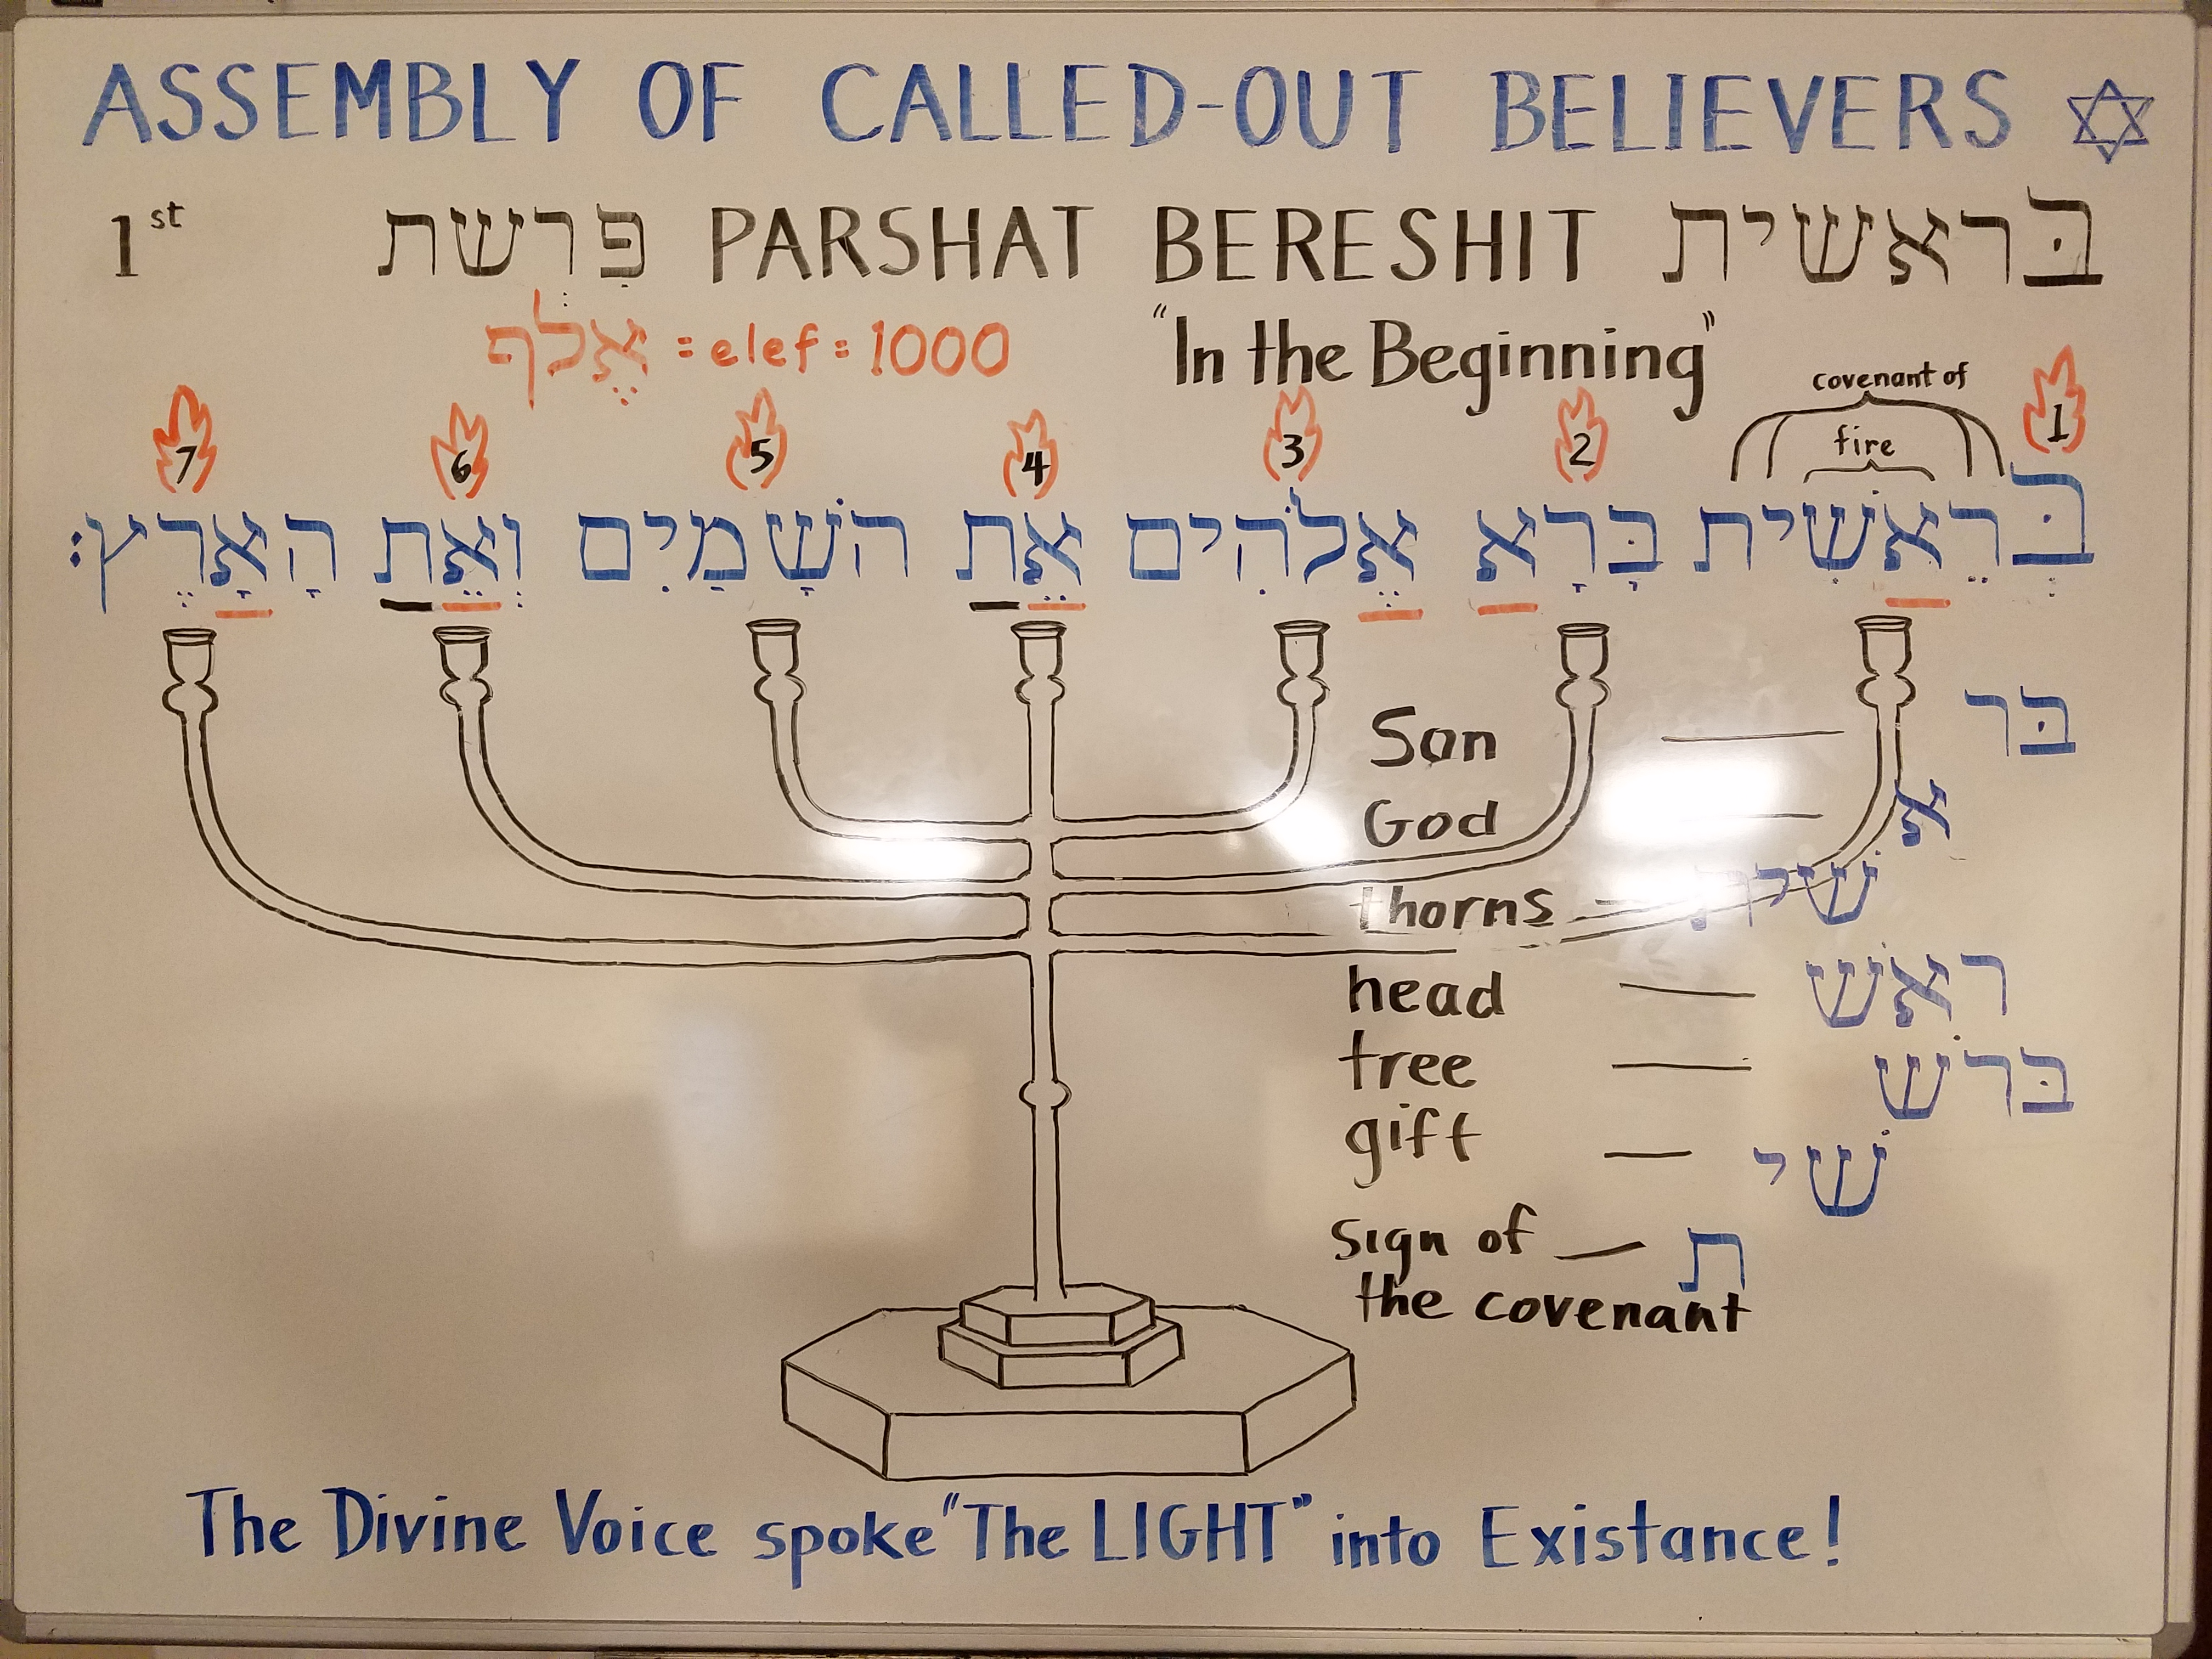 ASSEMBLY OF CALLED-OUT BELIEVERS
1st פְּרִשת PARSHAT BERESHIT בּראשית
אֶלֶף = elef = 1000
"In the Beginning"
covenant of
fire
7 6 5 4 3 2 1
בְּרֵאשִׁית בָּרָא אֱלֹהִים אֵת השָׁמַיִם וְאֵת הָאָרֶץ׃
Son — בּר
God — א
thorns — שׁית
head — ראשׁ
tree — בּרשׁ
gift — שׁי
sign of — ת
the covenant
The Divine Voice spoke "The LIGHT" into Existance!